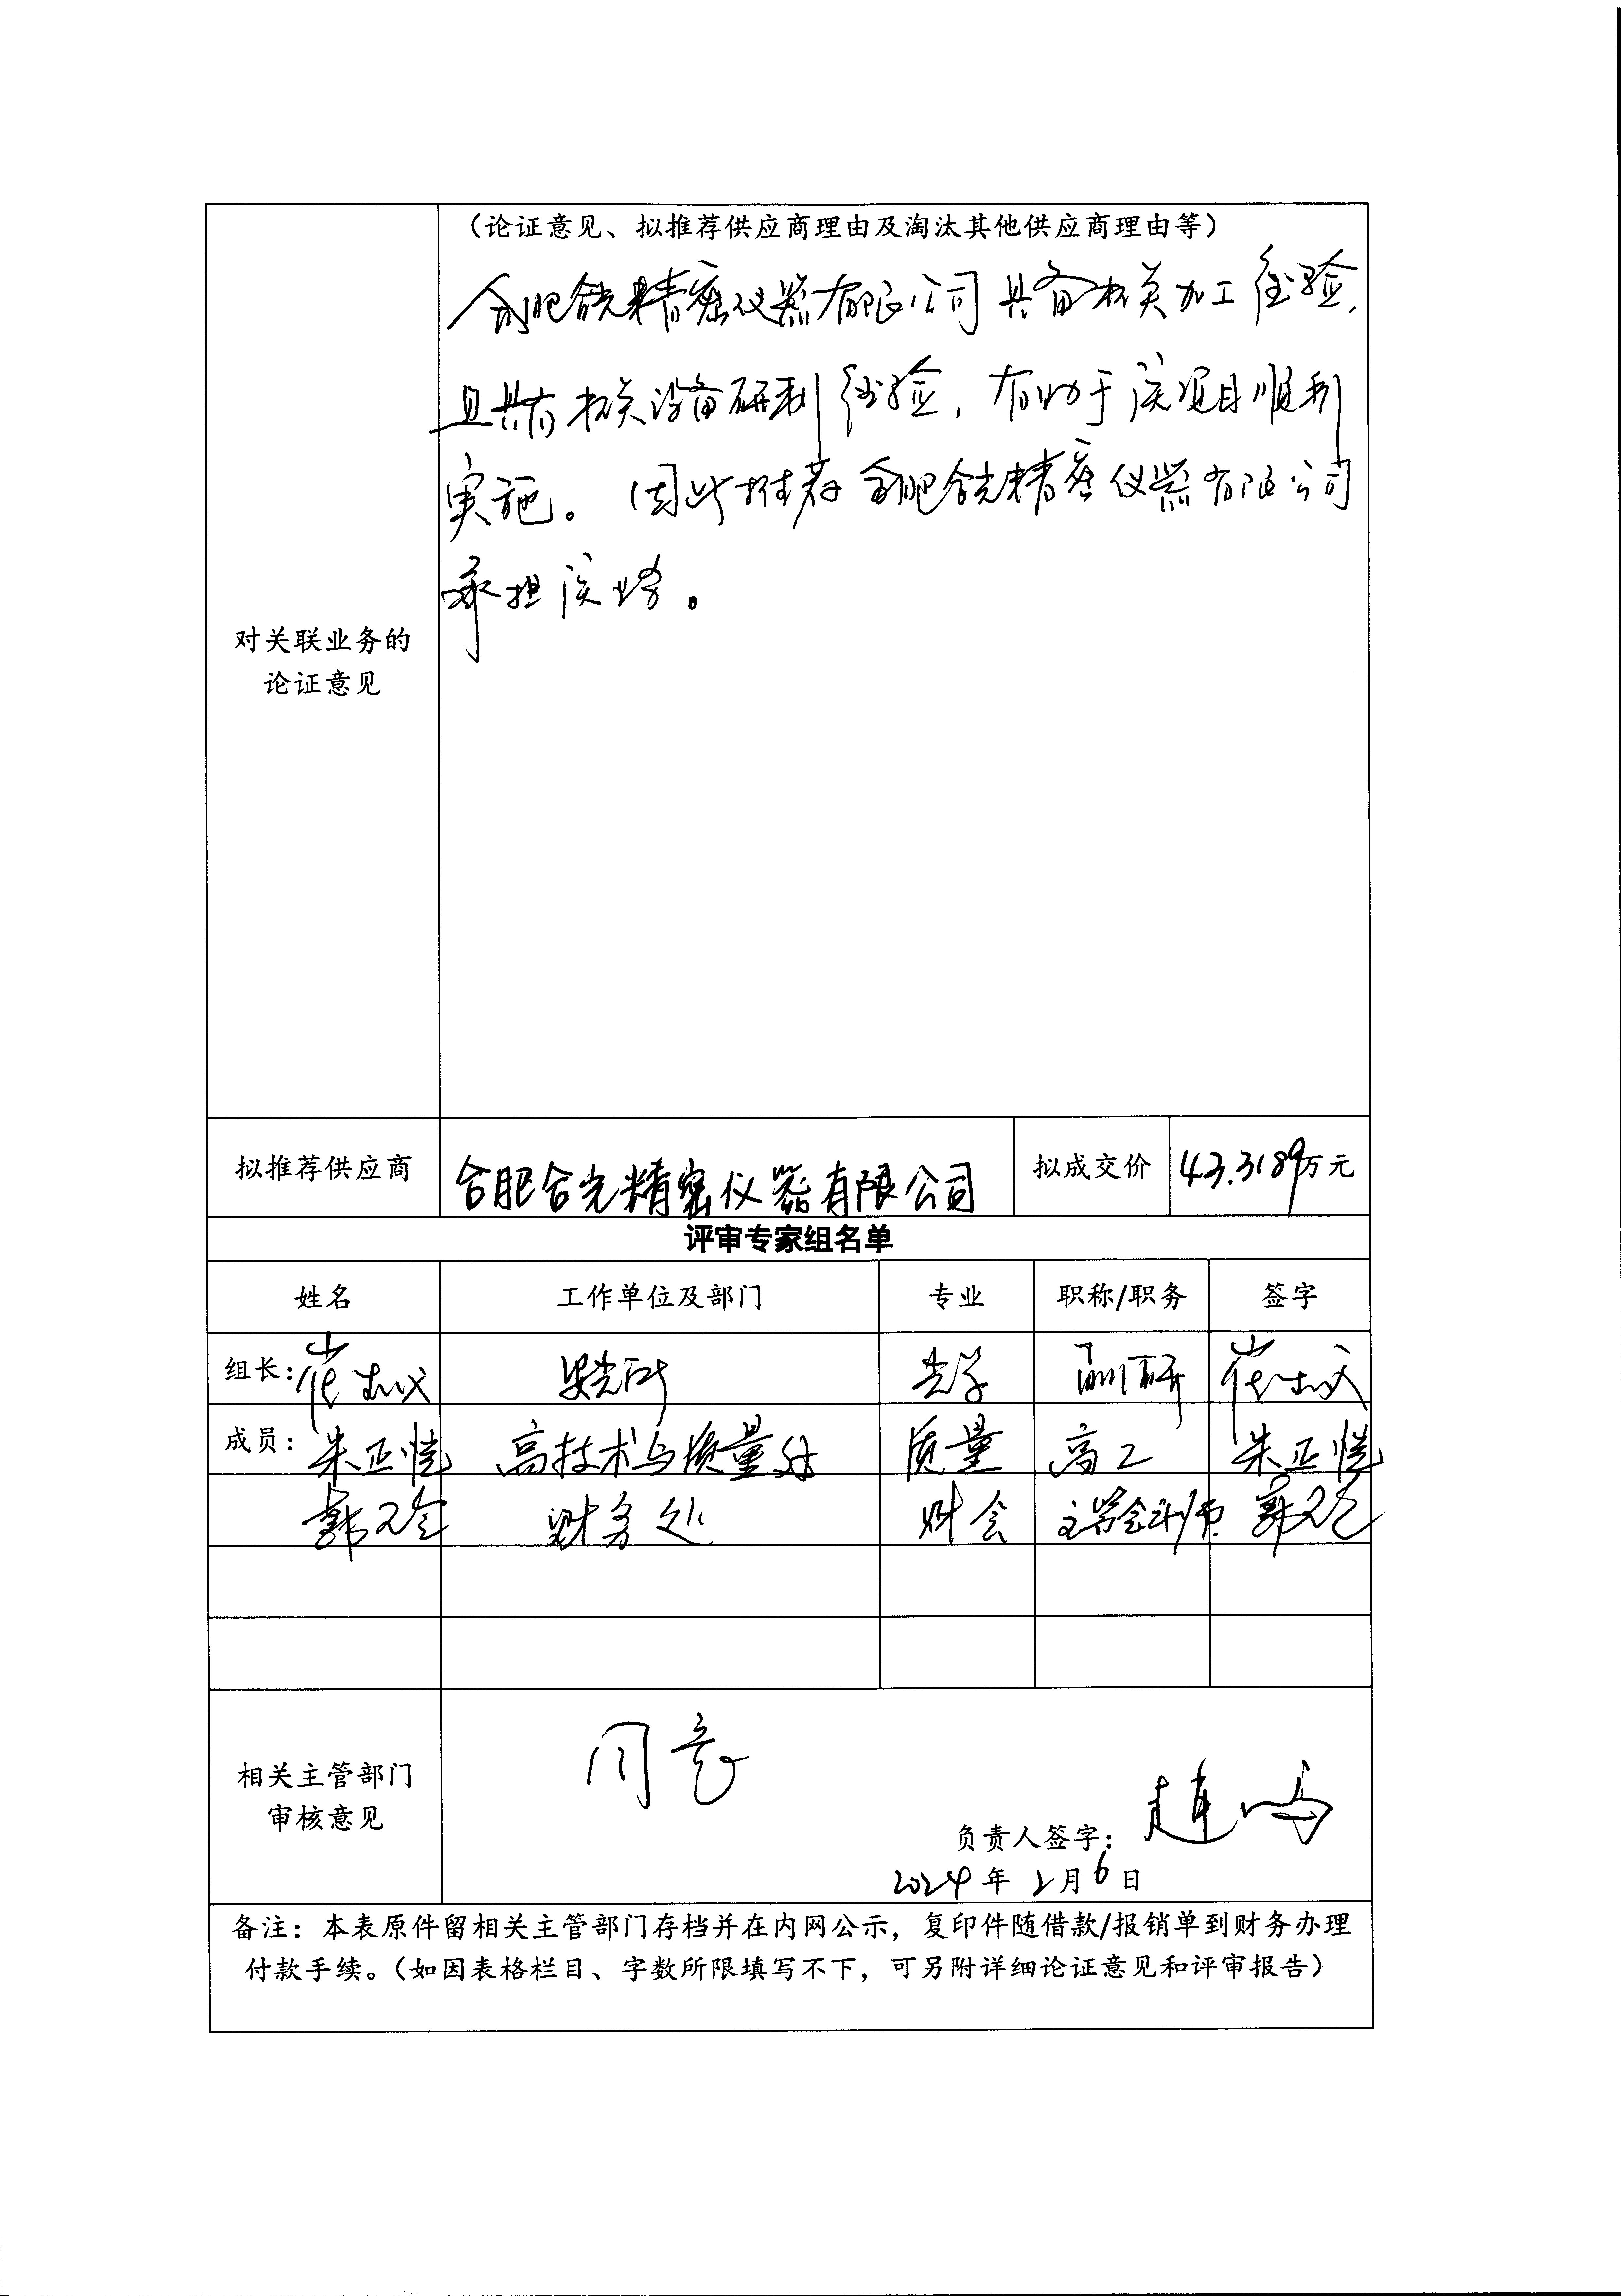 （论证意见、拟推荐供应商理由及淘汰其他供应商理由等）
合肥合光精密仪器有限公司具备相关加工经验，
且具有相关设备研制经验，有助于该项目顺利
实施。因此推荐合肥合光精密仪器有限公司
承担该业务。
对关联业务的
论证意见
拟推荐供应商 合肥合光精密仪器有限公司 拟成交价 43.3189万元
评审专家组名单
姓名 工作单位及部门 专业 职称/职务 签字
组长： 安光所 光学 副研
成员： 朱正 高技术与质量处 质量 高工 朱正
财务处 财会 主管会计师
同意
相关主管部门
审核意见
负责人签字：
2024年2月6日
备注：本表原件留相关主管部门存档并在内网公示，复印件随借款/报销单到财务办理
付款手续。（如因表格栏目、字数所限填写不下，可另附详细论证意见和评审报告）